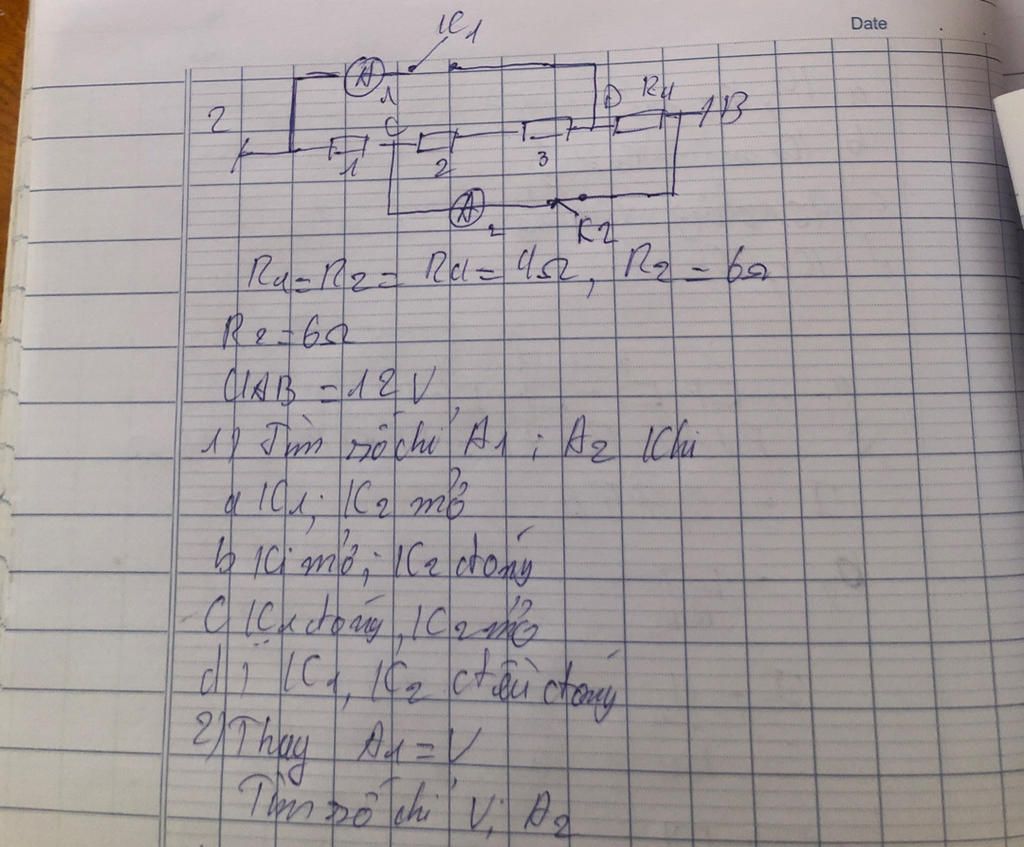 Date
K1
A
1
2
C
D
R4
B
1
2
3
A
2
K2
R1=R2= R4= 4Ω, R2 = 6Ω
R2=6Ω
UAB = 12 V
1) Tìm số chỉ A1 ; A2 Khi
a K1; K2 mở
b K1 mở; K2 đóng
C K1 đóng, K2 mở
d) K1, K2 đều đóng
2) Thay A1 = V
Tìm số chỉ V; A2